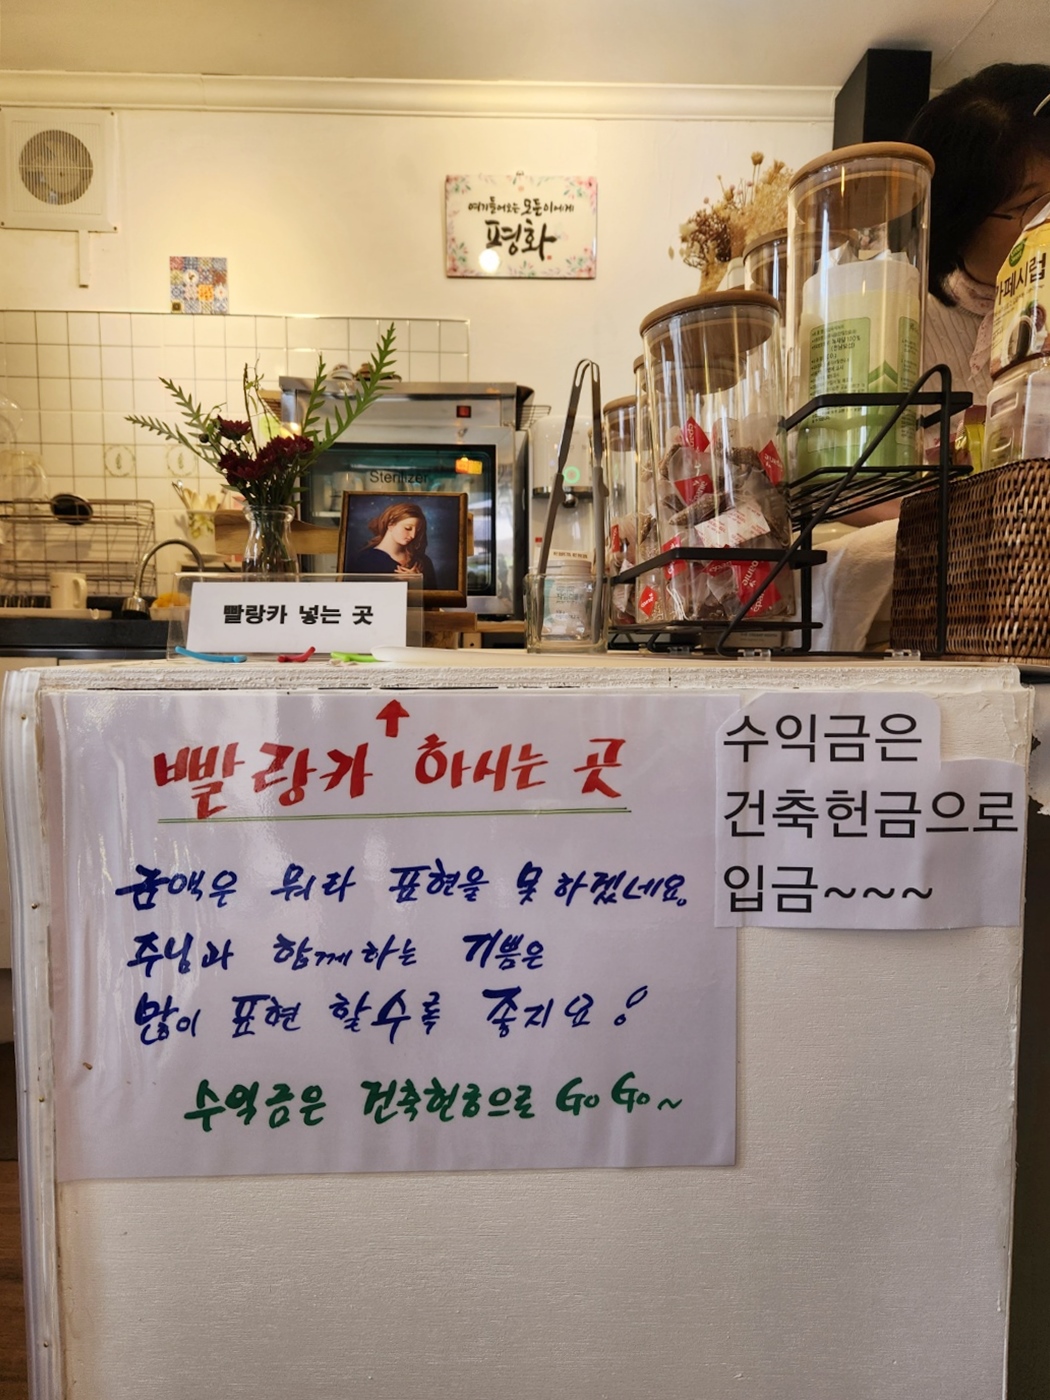 여기 들어오는 모든이에게
평화
카페시럽
Sterilizer
빨랑카 넣는 곳
빨랑카 하시는 곳
금액은 뭐라 표현을 못 하겠네요
주님과 함께하는 기쁨은
많이 표현 할수록 좋지요!
수익금은 건축헌금으로 GO GO~
수익금은
건축헌금으로
입금~~~